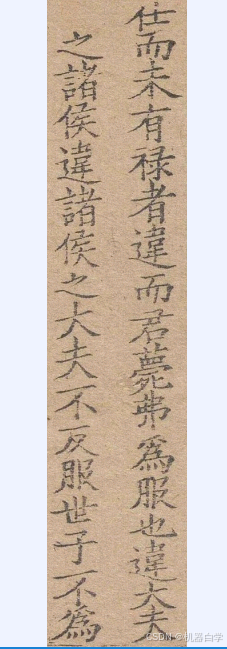 仕而未有禄者違而君薨弗為服也違大夫
之諸侯違諸侯之大夫不反服世子不為
CSDN @机器白学